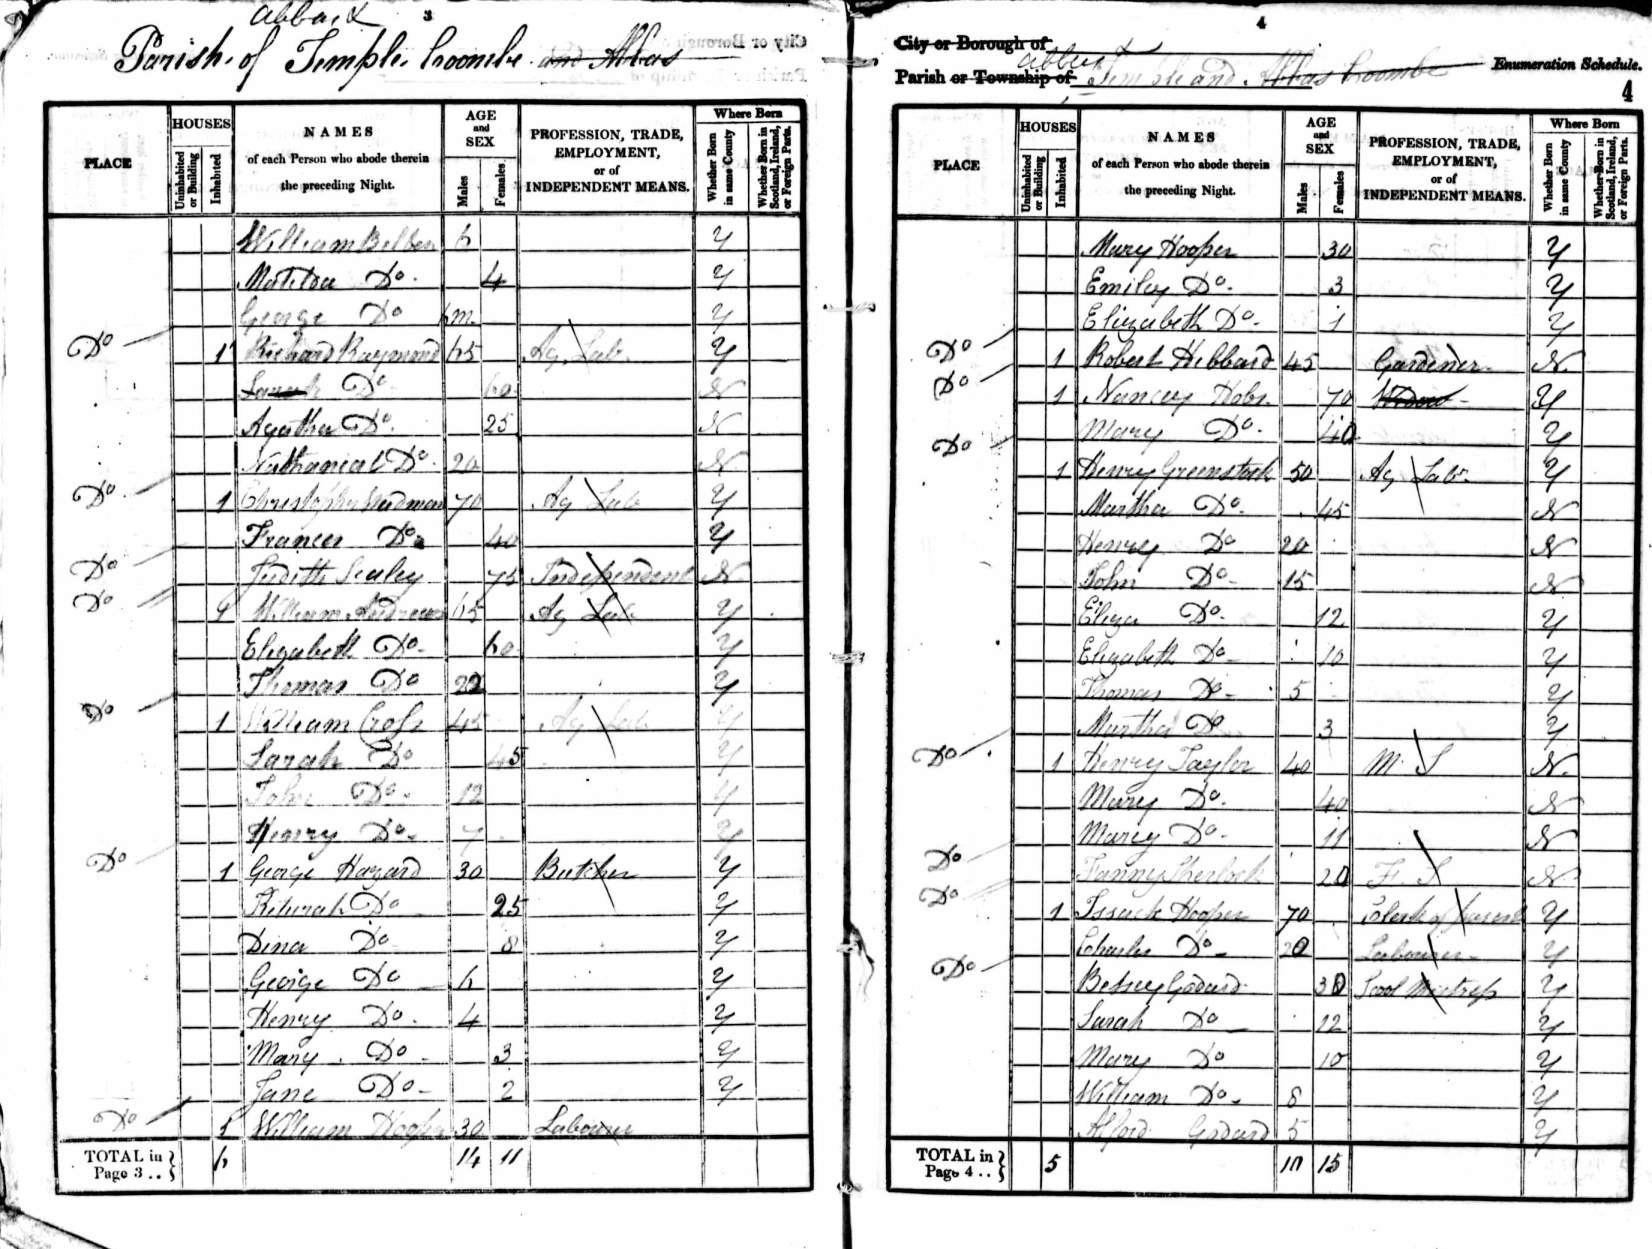 3
abbas &
Parish of Temple Coombe and Abbas
PLACE
HOUSES
Uninhabited or Building
Inhabited
NAMES
of each Person who abode therein
the preceding Night.
AGE
and
SEX
Males
Females
PROFESSION, TRADE,
EMPLOYMENT,
or of
INDEPENDENT MEANS.
Where Born
Whether Born in same County
Whether Born in Scotland, Ireland, or Foreign Parts.
William 6 Y
Matilda Do. 4 Y
George Do 6m. Y
Do 1 Richard Raymond 65 Ag. Lab. Y
Sarah Do 60 N
Agatha Do. 25 N
Nathanial Do. 20 N
Do 1 70 Ag Lab Y
Frances Do. 40 Y
Do Judith Sealey 75 Independent N
Do 1 William Andrews 65 Ag Lab Y
Elizabeth Do. 60 Y
Thomas Do 22 Y
Do 1 William Cross 45 Ag Lab Y
Sarah Do 45 Y
John Do. 12 Y
Henry Do. 7 Y
Do 1 George Hazard 30 Butcher Y
Kiturah Do 25 Y
Dina Do 8 Y
George Do 6 Y
Henry Do. 4 Y
Mary Do 3 Y
Jane Do 2 Y
Do 1 William Hooper 30 Labourer
TOTAL in Page 3 .. } 6 14 11
4
City or Borough of
abbas &
Parish or Township of Temple and Abbas Coombe
Enumeration Schedule.
4
PLACE
HOUSES
Uninhabited or Building
Inhabited
NAMES
of each Person who abode therein
the preceding Night.
AGE
and
SEX
Males
Females
PROFESSION, TRADE,
EMPLOYMENT,
or of
INDEPENDENT MEANS.
Where Born
Whether Born in same County
Whether Born in Scotland, Ireland, or Foreign Parts.
Mary Hooper 30 Y
Emiley Do. 3 Y
Elizabeth Do. 1 Y
Do 1 Robert Hebbard 45 Gardener N.
Do 1 Nancey Hobs. 70 Widow Y
Mary Do. 40 Y
Do 1 Henry Greenstock 50 Ag Lab. Y
Martha Do. 45 N
Henry Do 20 N
John Do 15 N
Eliza Do. 12 Y
Elizabeth Do 10 Y
Thomas Do 5 Y
Martha Do 3 Y
Do 1 Henry Taylor 40 M. S N.
Mary Do. 40 N
Marey Do. 11 N
Do Fanny Sherlock 20 F. S N
Do 1 Issack Hooper 70 Clark of Y
Charles Do 20 Labourer Y
Do Betsey Godard 30 Scool Mistress Y
Sarah Do 12 Y
Mary Do 10 Y
William Do. 8 Y
Alford Godard 5 Y
TOTAL in Page 4 .. } 5 10 15